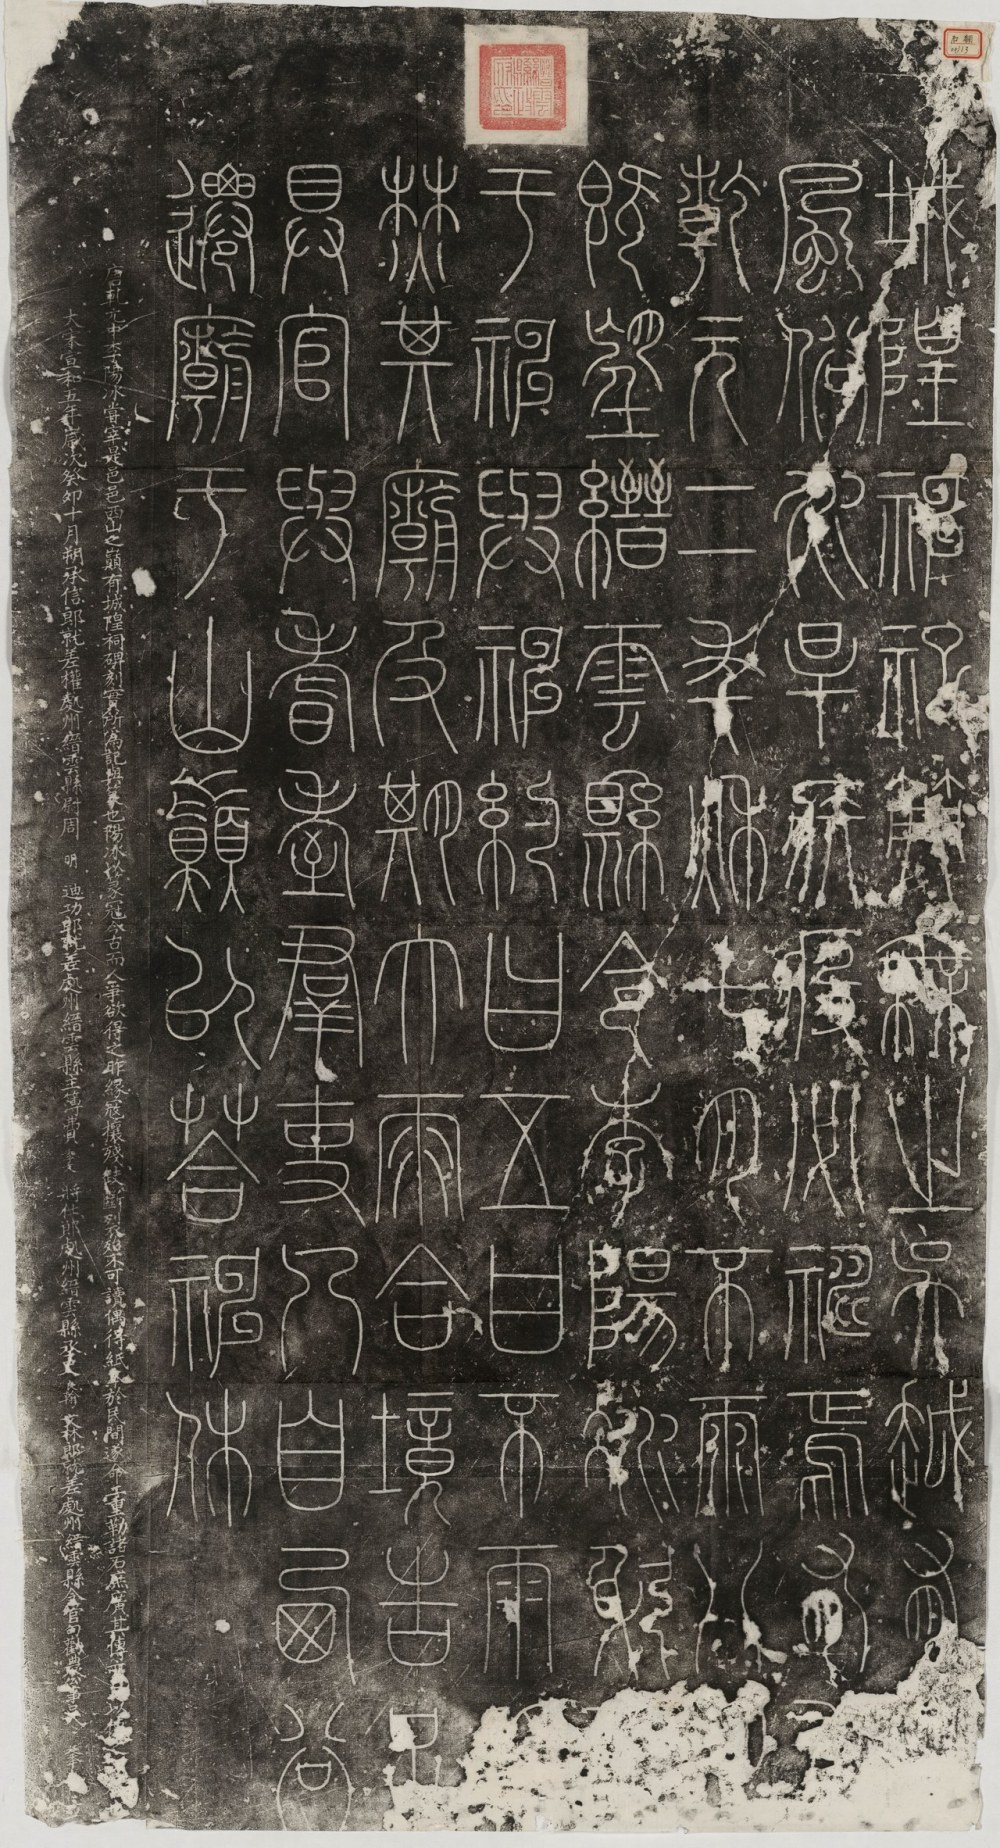 城隍神祀典無之吳越有
風俗水旱疾疫必禱焉有
乾元二年秋七月不雨八
既望縉雲縣令李陽冰躬
于神與神約曰五日不雨
焚其廟及期大雨合境告足
具官與耆耋群吏乃自西谷
遷廟于山巔以荅神休
唐乾元中李陽冰嘗宰是邑邑西山之巔有城隍祠碑刻實所為記與篆也陽冰以篆冠今古而人爭欲得之昨緣寇攘殘缺斷裂殆不可讀偶得紙本於民間遂命工重勒諸石庶廣其傳
大宋宣和五年歲次癸卯十月朔承信郎就差權處州縉雲縣尉周明 迪功郎就差處州縉雲縣主簿費 將仕郎處州縉雲縣丞史 文林郎就差處州縉雲縣令管句勸農事吳 立